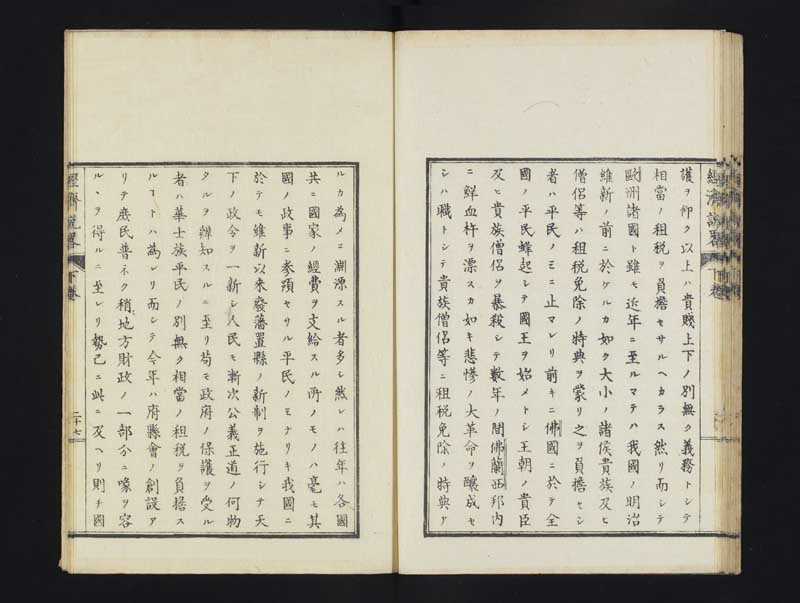 護ヲ仰ク以上ハ貴賤上下ノ別無ク義務トシテ
相當ノ租税ヲ負擔セサルヘカラス然リ而シテ
歐洲諸國ト雖モ近年ニ至ルマテハ我國ノ明治
維新ノ前ニ於ケルカ如ク大小ノ諸侯貴族及ヒ
僧侶等ハ租税免除ノ特典ヲ蒙リ之ヲ負擔セシ
者ハ平民ノミニ止マレリ前キニ佛國ニ於テ全
國ノ平民蜂起シテ國王ヲ始メトシ王朝ノ貴臣
及ヒ貴族僧侶ヲ暴殺シテ數年ノ間佛蘭西邦内
ニ鮮血杵ヲ漂スカ如キ悲慘ノ大革命ヲ釀成セ
シハ職トシテ貴族僧侶等ニ租税免除ノ特典ア
經濟説略 下卷
ルカ為メニ淵源スル者多シ然レハ往年ハ各國
共ニ國家ノ經費ヲ支給スル所ノモノハ毫モ其
國ノ政事ニ参預セサル平民ノミナリキ我國ニ
於テモ維新以来廢藩置縣ノ新制ヲ施行シテ天
下ノ政令ヲ一新シ人民モ漸次公義正道ノ何物
タルヲ辨知スルニ至リ苟モ政府ノ保護ヲ受ル
者ハ華士族平民ノ別無ク相當ノ租税ヲ負擔ス
ルヿトハ為レリ而シテ今年ハ府縣會ノ創設ア
リテ庶民普ネク稍地方財政ノ一部分ニ喙ヲ容
ルヽヲ得ルニ至レリ勢已ニ此ニ及ヘリ則チ國
經濟説略 下卷 二十七